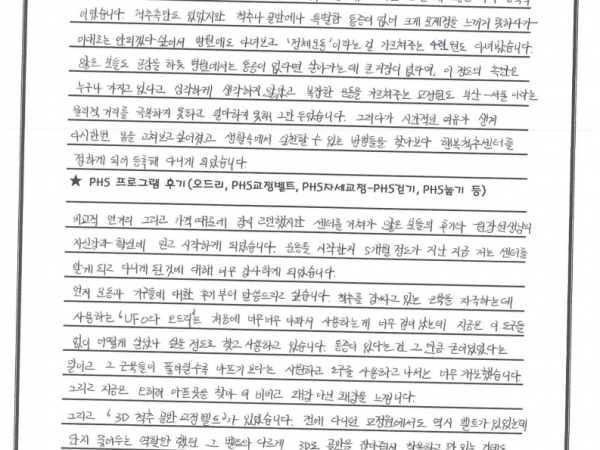 이었습니다. 척추측만도 있었지만 척추나 골반에나 특별한 통증이 없어 크게 문제점을 느끼지 못하다가
이대로는 안되겠다 싶어서 병원에도 다녀보고 '정체운동'이라는 걸 가르쳐주는 수련원도 다녀봤습니다.
많은 분들도 공감을 하듯 병원에서는 통증이 없다면 살아가는 데 큰 지장이 없다하며, 이 정도의 측만은
누구나 가지고 있다고 심각하게 생각하지 않았고 복잡한 운동을 가르쳐주는 교정원도 부산-서울 이라는
물리적 거리를 극복하지 못하고 얼마하지 못해 그만 두었습니다. 그러다가 시간적인 여유가 생겨
다시한번 몸을 고쳐보고 싶어졌고 생활속에서 실천할 수 있는 방법들을 찾아보다 행복척추센터를
접하게 되어 등록해 다니게 되었습니다.
★ PHS 프로그램 후기(오드리, PHS교정벨트, PHS자세교정-PHS걷기, PHS눕기 등)
비교적 먼거리 그리고 가격때문에 잠시 고민했지만 센터를 거쳐가 많은 분들의 후기과 원장선생님의
자신감과 확신에 믿고 시작하게 되었습니다. 운동을 시작한지 5개월 정도가 지난 지금 저는 센터를
알게 되고 다니게 된 것에 대해 너무 감사하게 되었습니다.
먼저 운동과 기구들에 대한 후기부터 말씀드리고 싶습니다. 척추를 감싸고 있는 근육을 자극하는데
사용하는 'UFO와 오드리'는 처음에 너무너무 아파서 사용하는게 너무 겁이 났는데 지금은 이 도구들
없이 어떻게 살았나 싶을 정도로 찾고 사용하고 있습니다. 통증이 있다는 건 그 만큼 굳어있었다는
말이고 그 근육들이 풀어질수록 아프기 보다는 시원하고 도구를 사용하고 나서는 너무 개운했습니다.
그리고 지금은 오히려 아픈곳을 찾아 더 비비고 쾌감 아닌 쾌감을 느낍니다.
그리고 '3D 척추 골반 교정벨트'가 있었습니다. 전에 다니던 교정원에서도 역시 벨트가 있었는데
단지 묶어두는 역할만 했던 그 벨트와 다르게 3D로 골반을 잡아줘서 착용하고 만 있는 건데도